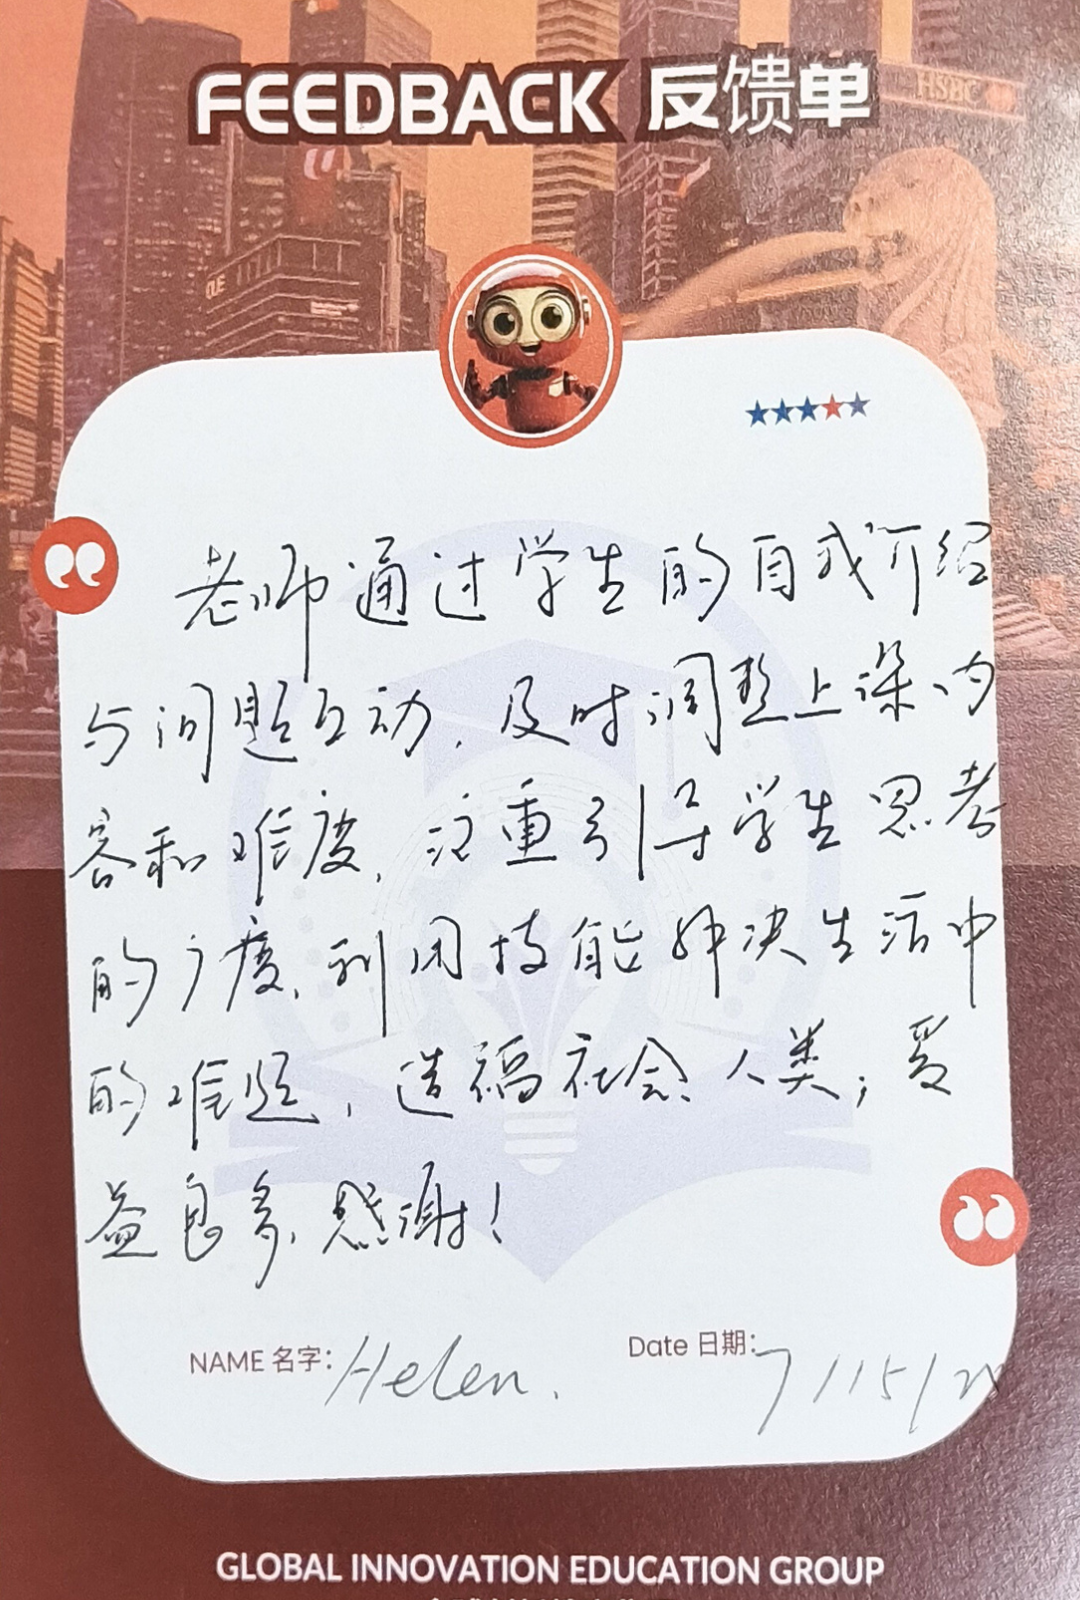 FEEDBACK 反馈单
HSBC
OUE
老师通过学生的自我介绍
与问题互动，及时调整上课内
容和难度，注重引导学生思考
的广度，利用技能解决生活中
的难题，造福社会、人类；受
益良多，感谢！
NAME 名字：Helen.
Date 日期：7/15/2
GLOBAL INNOVATION EDUCATION GROUP